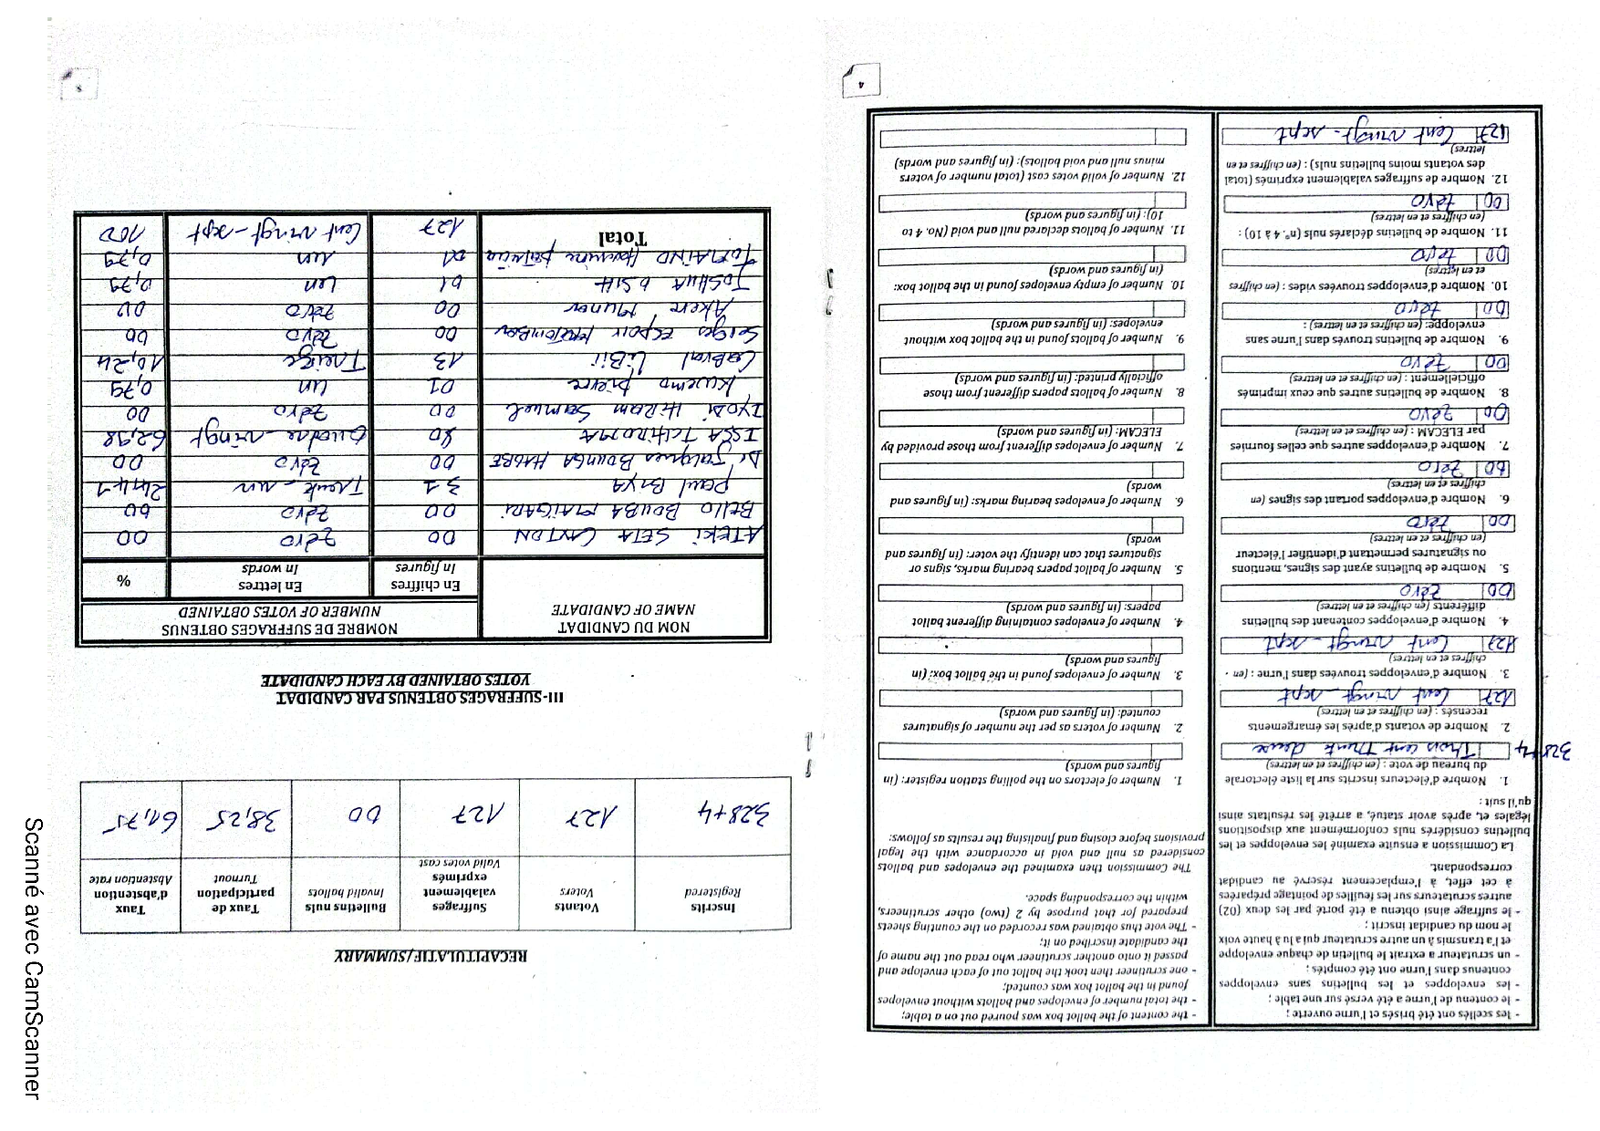 - les scellés ont été brisés et l'urne ouverte ;
- le contenu de l'urne a été versé sur une table ;
- les enveloppes et les bulletins sans enveloppes
contenus dans l'urne ont été comptés ;
- un scrutateur a extrait le bulletin de chaque enveloppe
et l'a transmis à un autre scrutateur qui a lu à haute voix
le nom du candidat inscrit ;
- le suffrage ainsi obtenu a été porté par les deux (02)
autres scrutateurs sur les feuilles de pointage préparées
à cet effet, à l'emplacement réservé au candidat
correspondant.
La Commission a ensuite examiné les enveloppes et les
bulletins considérés nuls conformément aux dispositions
légales et, après avoir statué, a arrêté les résultats ainsi
qu'il suit :
1. Nombre d'électeurs inscrits sur la liste électorale
du bureau de vote : (en chiffres et en lettres)
328+4 Trois cent trente deux
2. Nombre de votants d'après les émargements
recensés : (en chiffres et en lettres)
127 Cent vingt-sept
3. Nombre d'enveloppes trouvées dans l'urne : (en
chiffres et en lettres)
127 Cent vingt-sept
4. Nombre d'enveloppes contenant des bulletins
différents (en chiffres et en lettres)
00 zéro
5. Nombre de bulletins ayant des signes, mentions
ou signatures permettant d'identifier l'électeur
(en chiffres et en lettres)
00 zéro
6. Nombre d'enveloppes portant des signes (en
chiffres et en lettres)
00 zéro
7. Nombre d'enveloppes autres que celles fournies
par ELECAM : (en chiffres et en lettres)
00 zéro
8. Nombre de bulletins autres que ceux imprimés
officiellement : (en chiffres et en lettres)
00 zéro
9. Nombre de bulletins trouvés dans l'urne sans
enveloppe: (en chiffres et en lettres) :
00 zéro
10. Nombre d'enveloppes trouvées vides : (en chiffres
et en lettres)
00 zéro
11. Nombre de bulletins déclarés nuls (n°. 4 à 10) :
(en chiffres et en lettres)
00 zéro
12. Nombre de suffrages valablement exprimés (total
des votants moins bulletins nuls) : (en chiffres et en
lettres)
127 Cent vingt-sept
- the content of the ballot box was poured out on a table;
- the total number of envelopes and ballots without envelopes
found in the ballot box was counted;
- one scrutineer then took the ballot out of each envelope and
passed it onto another scrutineer who read out the name of
the candidate inscribed on it;
- The vote thus obtained was recorded on the counting sheets
prepared for that purpose by 2 (two) other scrutineers,
within the corresponding space.
The Commission then examined the envelopes and ballots
considered as null and void in accordance with the legal
provisions before closing and finalising the results as follows:
1. Number of electors on the polling station register: (in
figures and words)
2. Number of voters as per the number of signatures
counted: (in figures and words)
3. Number of envelopes found in the ballot box: (in
figures and words)
4. Number of envelopes containing different ballot
papers: (in figures and words)
5. Number of ballot papers bearing marks, signs or
signatures that can identify the voter: (in figures and
words)
6. Number of envelopes bearing marks: (in figures and
words)
7. Number of envelopes different from those provided by
ELECAM: (in figures and words)
8. Number of ballots papers different from those
officially printed: (in figures and words)
9. Number of ballots found in the ballot box without
envelopes: (in figures and words)
10. Number of empty envelopes found in the ballot box:
(in figures and words)
11. Number of ballots declared null and void (No. 4 to
10): (in figures and words)
12. Number of valid votes cast (total number of voters
minus null and void ballots): (in figures and words)
4
RECAPITULATIF/SUMMARY
Inscrits Registered | Votants Voters | Suffrages valablement exprimés Valid votes cast | Bulletins nuls Invalid ballots | Taux de participation Turnout | Taux d'abstention Abstention rate
328+4 | 127 | 127 | 00 | 38,25 | 61,75
III-SUFFRAGES OBTENUS PAR CANDIDAT
VOTES OBTAINED BY EACH CANDIDATE
NOM DU CANDIDAT NAME OF CANDIDATE | NOMBRE DE SUFFRAGES OBTENUS NUMBER OF VOTES OBTAINED
En chiffres In figures | En lettres In words | %
ATEKI SETA CAXTON | 00 | zéro | 00
BELLO BOUBA MAIGARI | 00 | zéro | 00
Paul BIYA | 31 | Trente-un | 24,41
Dr Jacques BOUNGA HAGBE | 00 | zéro | 00
ISSA TCHIROMA | 80 | Quatre-vingt | 62,98
IYODI HIRAM Samuel | 00 | zéro | 00
Kwemo pierre | 01 | un | 0,79
Cabral LIBII | 13 | Treize | 10,24
Serges ESPOIR MATOMBA | 00 | zéro | 00
Akere Muna | 00 | zéro | 00
JOSHUA OSIH | 01 | un | 0,79
TOMAINO Hermine patricia | 01 | un | 0,79
Total | 127 | Cent vingt-sept | 100
Scanné avec CamScanner